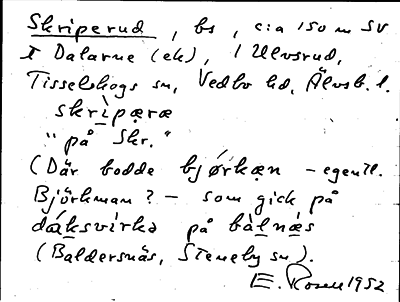 Skriperud, bs, c:a 150 m SV
I Dalarne (ek), i Ulvsrud,
Tisselskogs sn, Vedbo hd, Älvsb. l.
skrìpæræ
"på Skr."
(Där bodde bjǿrkæn – egentl.
Björkman? – som gick på
dáksvìrkə på bàlnǽs
(Baldersnäs, Steneby sn).
E. Rosell 1952